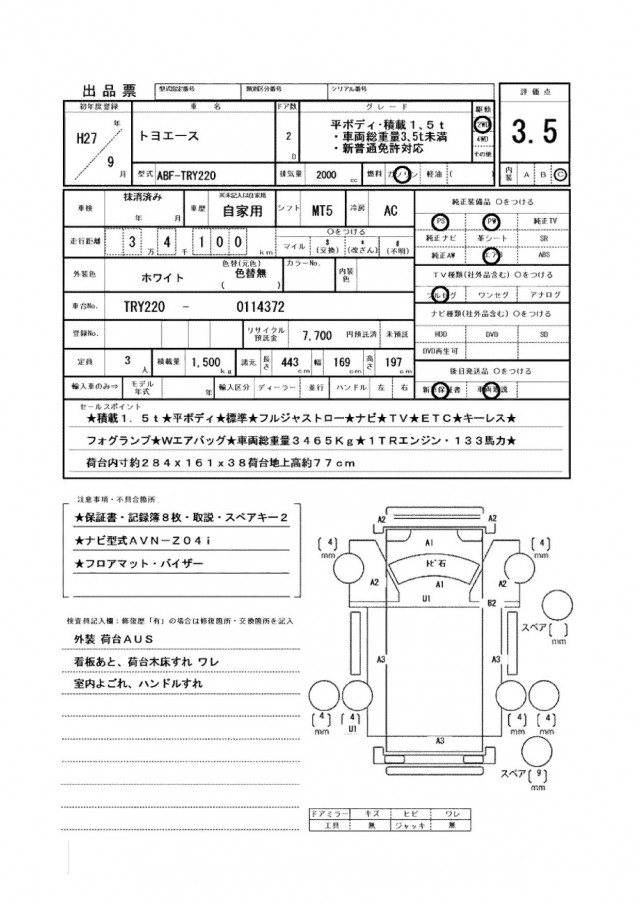 出品票 型式指定番号 類別区分番号 シリアル番号
初年度登録 車名 ドア数 グレード 駆動 評価点
H27 年 9 月
トヨエース
2 D
平ボディ・積載1,5t
・車両総重量3.5t未満
・新普通免許対応
2WD
4WD
その他
3.5
型式 ABF-TRY220 排気量 2000 cc 燃料 ガソリン 軽油 ( ) 内装 A B C
車検 抹消済み 年 月 車歴 ※未記入は自家用 自家用 シフト MT5 冷房 AC
純正装備品 〇をつける
PS PW 純正TV
純正ナビ 革シート SR
純正AW エアB ABS
走行距離 3 万 4 千 1 0 0 km 〇をつける マイル $ (交換) * (改ざん) # (不明)
外装色 ホワイト 色替(元色) 色替無 ( ) カラーNo. 内装色
TV種類(社外品含む) 〇をつける
フルセグ ワンセグ アナログ
車台No. TRY220 - 0114372
ナビ種類(社外品含む) 〇をつける
HDD DVD SD
DVD再生可
登録No. リサイクル預託金 7,700 円預託済 未預託
定員 3 人 積載量 1,500 kg 諸元 長さ 443 cm 幅 169 cm 高さ 197 cm
後日発送品 〇をつける
新車保証書 車両取説
輸入車のみ⇒ モデル年式 年 輸入区分 ディーラー 並行 ハンドル 左 右
セールスポイント
★積載1.5t★平ボディ★標準★フルジャストロー★ナビ★TV★ETC★キーレス★
フォグランプ★Wエアバッグ★車両総重量3465Kg★1TRエンジン・133馬力★
荷台内寸約284x161x38荷台地上高約77cm
注意事項・不具合箇所
★保証書・記録簿8枚・取説・スペアキー2
★ナビ型式AVN-Z04i
★フロアマット・バイザー
検査員記入欄：修復歴「有」の場合は修復箇所・交換箇所を記入
外装 荷台AUS
看板あと、荷台木床すれ ワレ
室内よごれ、ハンドルすれ
A2 A2
A1
(4) mm (4) mm
トビ石
A2 A1 A2
U1 B2
スペア( ) mm
A3 A3
(4) mm (4) mm (4) mm (4) mm
U1
A3
スペア(9) mm
ドアミラー キズ ヒビ ワレ
工具 無 ジャッキ 無